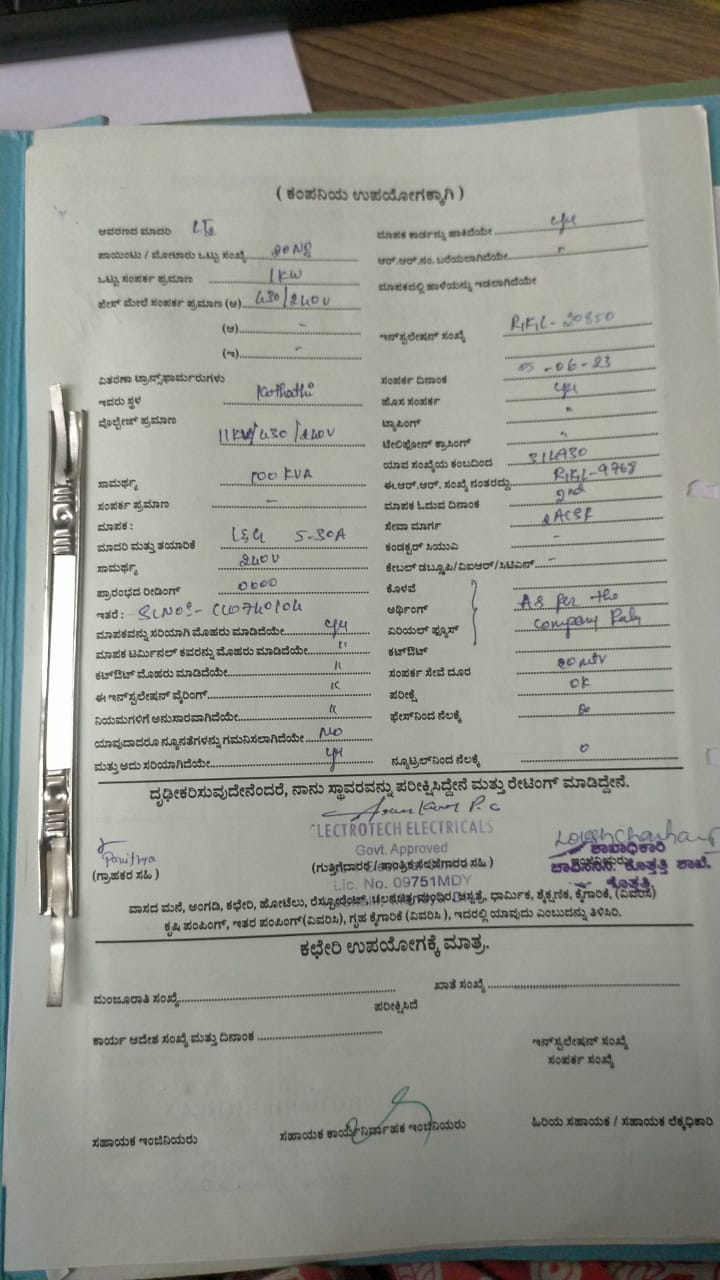 ( ಕಂಪನಿಯ ಉಪಯೋಗಕ್ಕಾಗಿ )
ಆವರಣದ ಮಾದರಿ
ಮಾಪಕ ಕಾರ್ಡನ್ನು ಹಾಕಿದೆಯೇ
ಪಾಯಿಂಟು / ಮೋಟಾರು ಒಟ್ಟು ಸಂಖ್ಯೆ
ಆರ್.ಆರ್.ನಂ. ಬರೆಯಲಾಗಿದೆಯೇ
ಒಟ್ಟು ಸಂಪರ್ಕ ಪ್ರಮಾಣ 1KW
ಮಾಪಕದಲ್ಲಿ ಹಾಳೆಯನ್ನು ಇಡಲಾಗಿದೆಯೇ
ಫೇಸ್ ಮೇಲೆ ಸಂಪರ್ಕ ಪ್ರಮಾಣ (ಅ) 430/240V
(ಆ) -
ಇನ್‌ಸ್ಟಲೇಷನ್ ಸಂಖ್ಯೆ RKL-20850
(ಇ) -
ವಿತರಣಾ ಟ್ರಾನ್ಸ್‌ಫಾರ್ಮರುಗಳು
ಸಂಪರ್ಕ ದಿನಾಂಕ 05-06-23
ಇವರು ಸ್ಥಳ Kothathi
ಹೊಸ ಸಂಪರ್ಕ
ವೊಲ್ಟೇಜ್ ಪ್ರಮಾಣ 11KV/430/240V
ಟ್ಯಾಪಿಂಗ್ "
ಟೆಲಿಫೋನ್ ಕ್ರಾಸಿಂಗ್ "
ಯಾವ ಸಂಖ್ಯೆಯ ಕಂಬದಿಂದ
ಸಾಮರ್ಥ್ಯ 100 KVA
ಈ.ಆರ್.ಆರ್. ಸಂಖ್ಯೆ ನಂತರದ್ದು RKL-9768
ಸಂಪರ್ಕ ಪ್ರಮಾಣ -
ಮಾಪಕ ಓದುವ ದಿನಾಂಕ 2nd
ಮಾಪಕ :
ಸೇವಾ ಮಾರ್ಗ 2ACSR
ಮಾದರಿ ಮತ್ತು ತಯಾರಿಕೆ L&G 5-30A
ಕಂಡಕ್ಟರ್ ಸಿಯುಎ -
ಸಾಮರ್ಥ್ಯ 240V
ಕೇಬಲ್ ಡಬ್ಲ್ಯೂಪಿ/ವಿಐಆರ್/ಸಿಟಿಎಸ್ -
ಪ್ರಾರಂಭದ ರೀಡಿಂಗ್ 0000
ಕೊಳವೆ
ಇತರೆ :
ಅರ್ಥಿಂಗ್ As per the
ಮಾಪಕವನ್ನು ಸರಿಯಾಗಿ ಮೊಹರು ಮಾಡಿದೆಯೇ
ಏರಿಯಲ್ ಫ್ಯೂಸ್ Company
ಮಾಪಕ ಟರ್ಮಿನಲ್ ಕವರನ್ನು ಮೊಹರು ಮಾಡಿದೆಯೇ "
ಕಟ್‌ಔಟ್
ಕಟ್‌ಔಟ್ ಮೊಹರು ಮಾಡಿದೆಯೇ "
ಸಂಪರ್ಕ ಸೇವೆ ದೂರ
ಈ ಇನ್‌ಸ್ಟಲೇಷನ್ ವೈರಿಂಗ್ "
ಪರೀಕ್ಷೆ OK
ನಿಯಮಗಳಿಗೆ ಅನುಸಾರವಾಗಿದೆಯೇ "
ಫೇಸ್‌ನಿಂದ ನೆಲಕ್ಕೆ
ಯಾವುದಾದರೂ ನ್ಯೂನತೆಗಳನ್ನು ಗಮನಿಸಲಾಗಿದೆಯೇ No
ಮತ್ತು ಅದು ಸರಿಯಾಗಿದೆಯೇ
ನ್ಯೂಟ್ರಲ್‌ನಿಂದ ನೆಲಕ್ಕೆ 0
ದೃಢೀಕರಿಸುವುದೇನೆಂದರೆ, ನಾನು ಸ್ಥಾವರವನ್ನು ಪರೀಕ್ಷಿಸಿದ್ದೇನೆ ಮತ್ತು ರೇಟಿಂಗ್ ಮಾಡಿದ್ದೇನೆ.
LECTROTECH ELECTRICALS
Govt. Approved
Pavithra
(ಗ್ರಾಹಕರ ಸಹಿ )
(ಗುತ್ತಿಗೆದಾರರ / ತಾಂತ್ರಿಕ ಸಲಹೆಗಾರರ ಸಹಿ )
Lic. No. 09751MDY
ಶಾಖಾಧಿಕಾರಿ
ಕೊತ್ತತ್ತಿ ಶಾಖೆ.
ಕೊತ್ತತ್ತಿ
ವಾಸದ ಮನೆ, ಅಂಗಡಿ, ಕಛೇರಿ, ಹೋಟೆಲು, ರೆಸ್ಟೋರೆಂಟ್, ಚಲನಚಿತ್ರ ಮಂದಿರ, ಆಸ್ಪತ್ರೆ, ಧಾರ್ಮಿಕ, ಶೈಕ್ಷಣಿಕ, ಕೈಗಾರಿಕೆ, (ವಿವರಿಸಿ)
ಕೃಷಿ ಪಂಪಿಂಗ್, ಇತರ ಪಂಪಿಂಗ್(ವಿವರಿಸಿ), ಗೃಹ ಕೈಗಾರಿಕೆ (ವಿವರಿಸಿ ), ಇದರಲ್ಲಿ ಯಾವುದು ಎಂಬುದನ್ನು ತಿಳಿಸಿರಿ.
ಕಛೇರಿ ಉಪಯೋಗಕ್ಕೆ ಮಾತ್ರ.
ಮಂಜೂರಾತಿ ಸಂಖ್ಯೆ
ಖಾತೆ ಸಂಖ್ಯೆ
ಪರೀಕ್ಷಿಸಿದೆ
ಕಾರ್ಯ ಆದೇಶ ಸಂಖ್ಯೆ ಮತ್ತು ದಿನಾಂಕ
ಇನ್‌ಸ್ಟಲೇಷನ್ ಸಂಖ್ಯೆ
ಸಂಪರ್ಕ ಸಂಖ್ಯೆ
ಸಹಾಯಕ ಇಂಜಿನಿಯರು
ಸಹಾಯಕ ಕಾರ್ಯನಿರ್ವಾಹಕ ಇಂಜಿನಿಯರು
ಹಿರಿಯ ಸಹಾಯಕ / ಸಹಾಯಕ ಲೆಕ್ಕಧಿಕಾರಿ